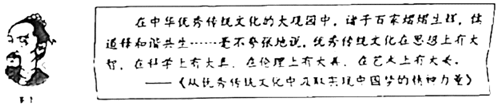 在中华优秀传统文化的大观园中，诸子百家熠熠生辉，儒
道释和谐共生……毫不夸张地说，优秀传统文化在思想上有大
智，在科学上有大真，在伦理上有大善，在艺术上有大美。
——《从优秀传统文化中汲取实现中国梦的精神力量》